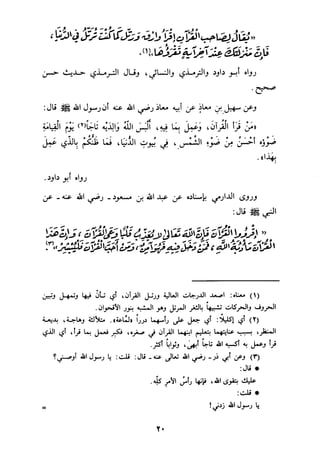 « يُقَالُ لِصَاحِبِ الْقُرْآنِ اقْرَأْ وَارْقَ وَرَتِّلْ كَمَا كُنْتَ تُرَتِّلُ فِي الدُّنْيَا،
فَإِنَّ مَنْزِلَتَكَ عِنْدَ آخِرِ آيَةٍ تَقْرَؤُهَا»(١).
رواه أبو داود والترمذي والنسائي، وقال الترمذي حديث حسن
صحيح.
وعن سهيل بن معاذ عن أبيه معاذ رضي الله عنه أن رسول الله ﷺ قال:
«مَنْ قَرَأَ الْقُرآنَ، وَعَمِلَ بِمَا فِيهِ، أُلْبِسَ اللَّهُ وَالِدَيْهِ تَاجاً(٢) يَوْمَ الْقِيَامَةِ
ضَوْؤهُ أَحْسَنُ مِنْ ضَوْءِ الشَّمْسِ، فِي بُيُوتِ الدُّنْيَا، فَمَا ظَنُّكُمْ بِالَّذِي عَمِلَ
بِهَذَا».
رواه أبو داود.
وروى الدارمي بإسناده عن عبد الله بن مسعود - رضي الله عنه - عن
النبي ﷺ قال:
« اقْرَءُوا الْقُرْآنَ فَإِنَّ اللَّهَ تَعَالَى لَا يُعَذِّبُ قَلْبًا وَعَى الْقُرْآنَ، وَإِنَّ هَذَا
الْقُرْآنَ مَأْدُبَةُ اللَّهِ، فَمَنْ دَخَلَ فِيهِ فَهُوَ آمِنٌ، وَمَنْ أَحَبَّ الْقُرْآنَ فَلْيُبْشِرْ»(٣).
(١) معناه: اصعد الدرجات العالية ورتل القرآن، أي تأن فيها وتمهل وتبين
الحروف والحركات تشبيهاً بالثغر المرتل وهو المشبه بنور الأقحوان.
(٢) أي إكليلاً: أي جعل على رأسها درراً «لماعة» متلألئة وهاجة، بديعة
المنظر، بسبب عنايتها بتعليم ابنها القرآن في صغره، فكبر فعمل بما قرأ، أي الذي
قرأ وعمل به أكسبه الله تاجاً أبهى، وثواباً أكثر.
(٣) وعن أبي ذر - رضي الله تعالى عنه - قال: قلت: يا رسول الله أوصني؟
● قال:
عليك بتقوى الله، فإنها رأس الأمر كله.
● قلت:
يا رسول الله زدني؟
=
٢٠